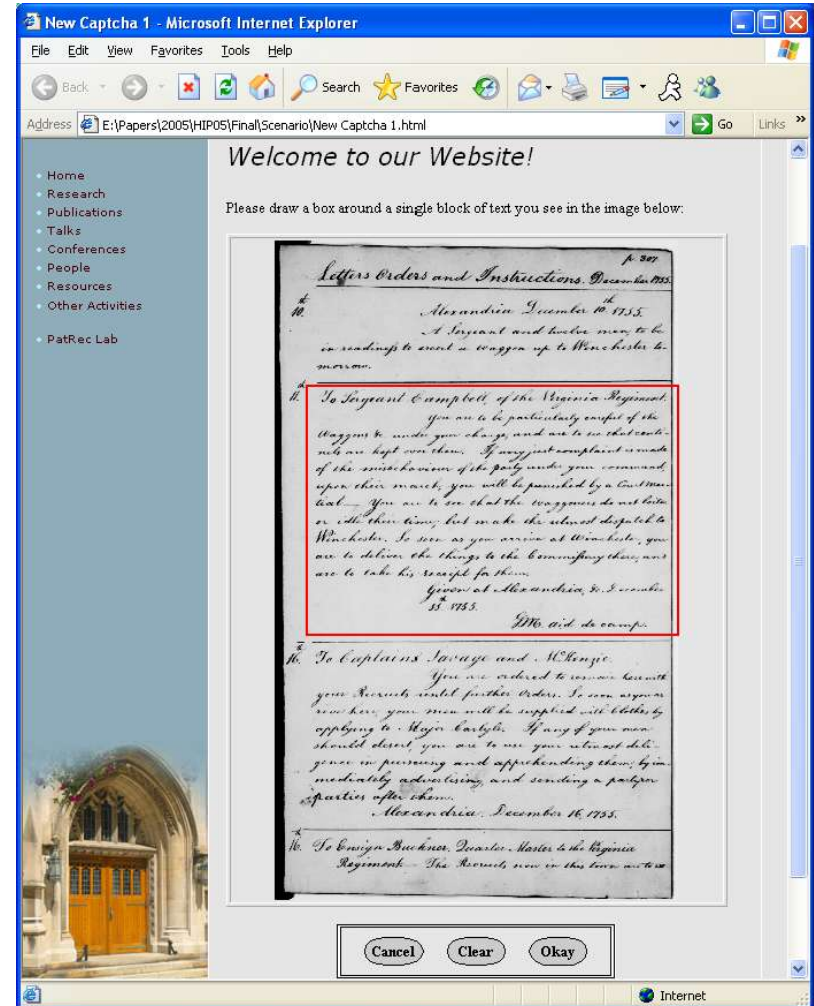 New Captcha 1 - Microsoft Internet Explorer
File Edit View Favorites Tools Help
Back Search Favorites
Address E:\Papers\2005\HIP05\Final\Scenario\New Captcha 1.html Go Links »
Home
Research
Publications
Talks
Conferences
People
Resources
Other Activities
PatRec Lab
Welcome to our Website!
Please draw a box around a single block of text you see in the image below:
p. 307
Letters Orders and Instructions. December 1755.
10.th Alexandria December 10.th 1755.
A Sergeant and twelve men, to be
in readiness to escort a waggon up to Winchester to-
morrow.
11.th To Sergeant Campbell, of the Virginia Regiment.
You are to be particularly careful of the
Waggons &c. under your charge, and are to see that centi-
nels are kept over them. If any just complaint is made
of the misbehaviour of the party under your command,
upon their march, you will be punished by a Court Mar-
tial. You are to see that the waggoners do not loiter
or idle their time; but make the utmost despatch to
Winchester. So soon as you arrive at Winchester, you
are to deliver the things to the Commissary there, and
are to take his receipt for them.
Given at Alexandria, &c. December
1755.
aid de camp.
16. To Captains Savage and McKenzie.
You are ordered to remove here with
your Recruits until further Orders. So soon as you ar-
rive here, your men will be supplied with Clothes by
applying to Major Carlyle. If any of your men
should desert, you are to use your utmost dili-
gence in pursuing and apprehending them; by im-
mediately advertising, and sending a party or
parties after them.
Alexandria. December 16, 1755.
16. To Ensign Buckner, Quarter Master to the Virginia
Regiment. The Recruits now in this town are to
Cancel Clear Okay
Internet